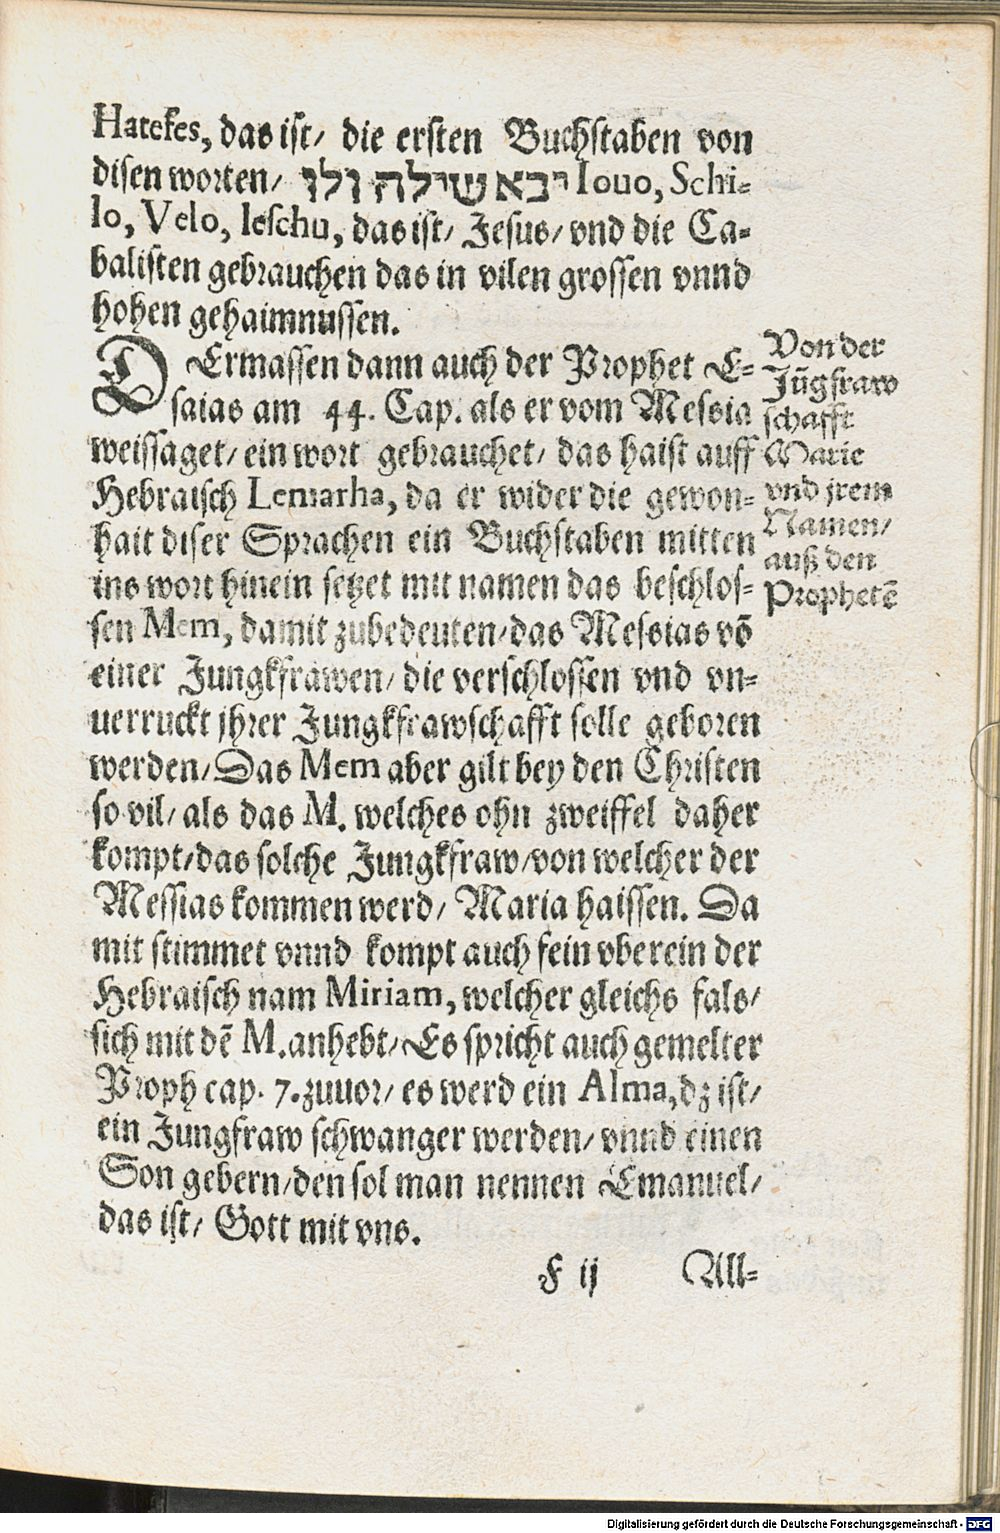 Hatekes, das ist/ die ersten Buchstaben von
disen worten/ יבא שילה ולו Iouo, Schi-
lo, Velo, Ieschu, das ist/ Jesus/ vnd die Ca-
balisten gebrauchen das in vilen grossen vnnd
hohen gehaimnussen.
DErmassen dann auch der Prophet E-
saias am 44. Cap. als er vom Messia
weissaget/ ein wort gebrauchet/ das haist auff
Hebraisch Lemarha, da er wider die gewon-
hait diser Sprachen ein Buchstaben mitten
ins wort hinein setzet mit namen das beschlos-
sen Mem, damit zubedeuten/ das Messias võ
einer Jungkfrawen/ die verschlossen vnd vn-
uerruckt jhrer Jungkfrawschafft solle geboren
werden/ Das Mem aber gilt bey den Christen
so vil/ als das M. welches ohn zweiffel daher
kompt/ das solche Jungkfraw/ von welcher der
Messias kommen werd/ Maria haissen. Da
mit stimmet vnnd kompt auch fein vberein der
Hebraisch nam Miriam, welcher gleichs fals/
sich mit dẽ M. anhebt/ Es spricht auch gemelter
Proph cap. 7. zuuor/ es werd ein Alma, dz ist/
ein Jungfraw schwanger werden/ vnnd einen
Son gebern/ den sol man nennen Emanuel/
das ist/ Gott mit vns.
Von der
Jũgfraw
schafft
Marie
vnd jrem
Namen/
auß den
Prophetẽ
F ij All-
Digitalisierung gefördert durch die Deutsche Forschungsgemeinschaft - DFG